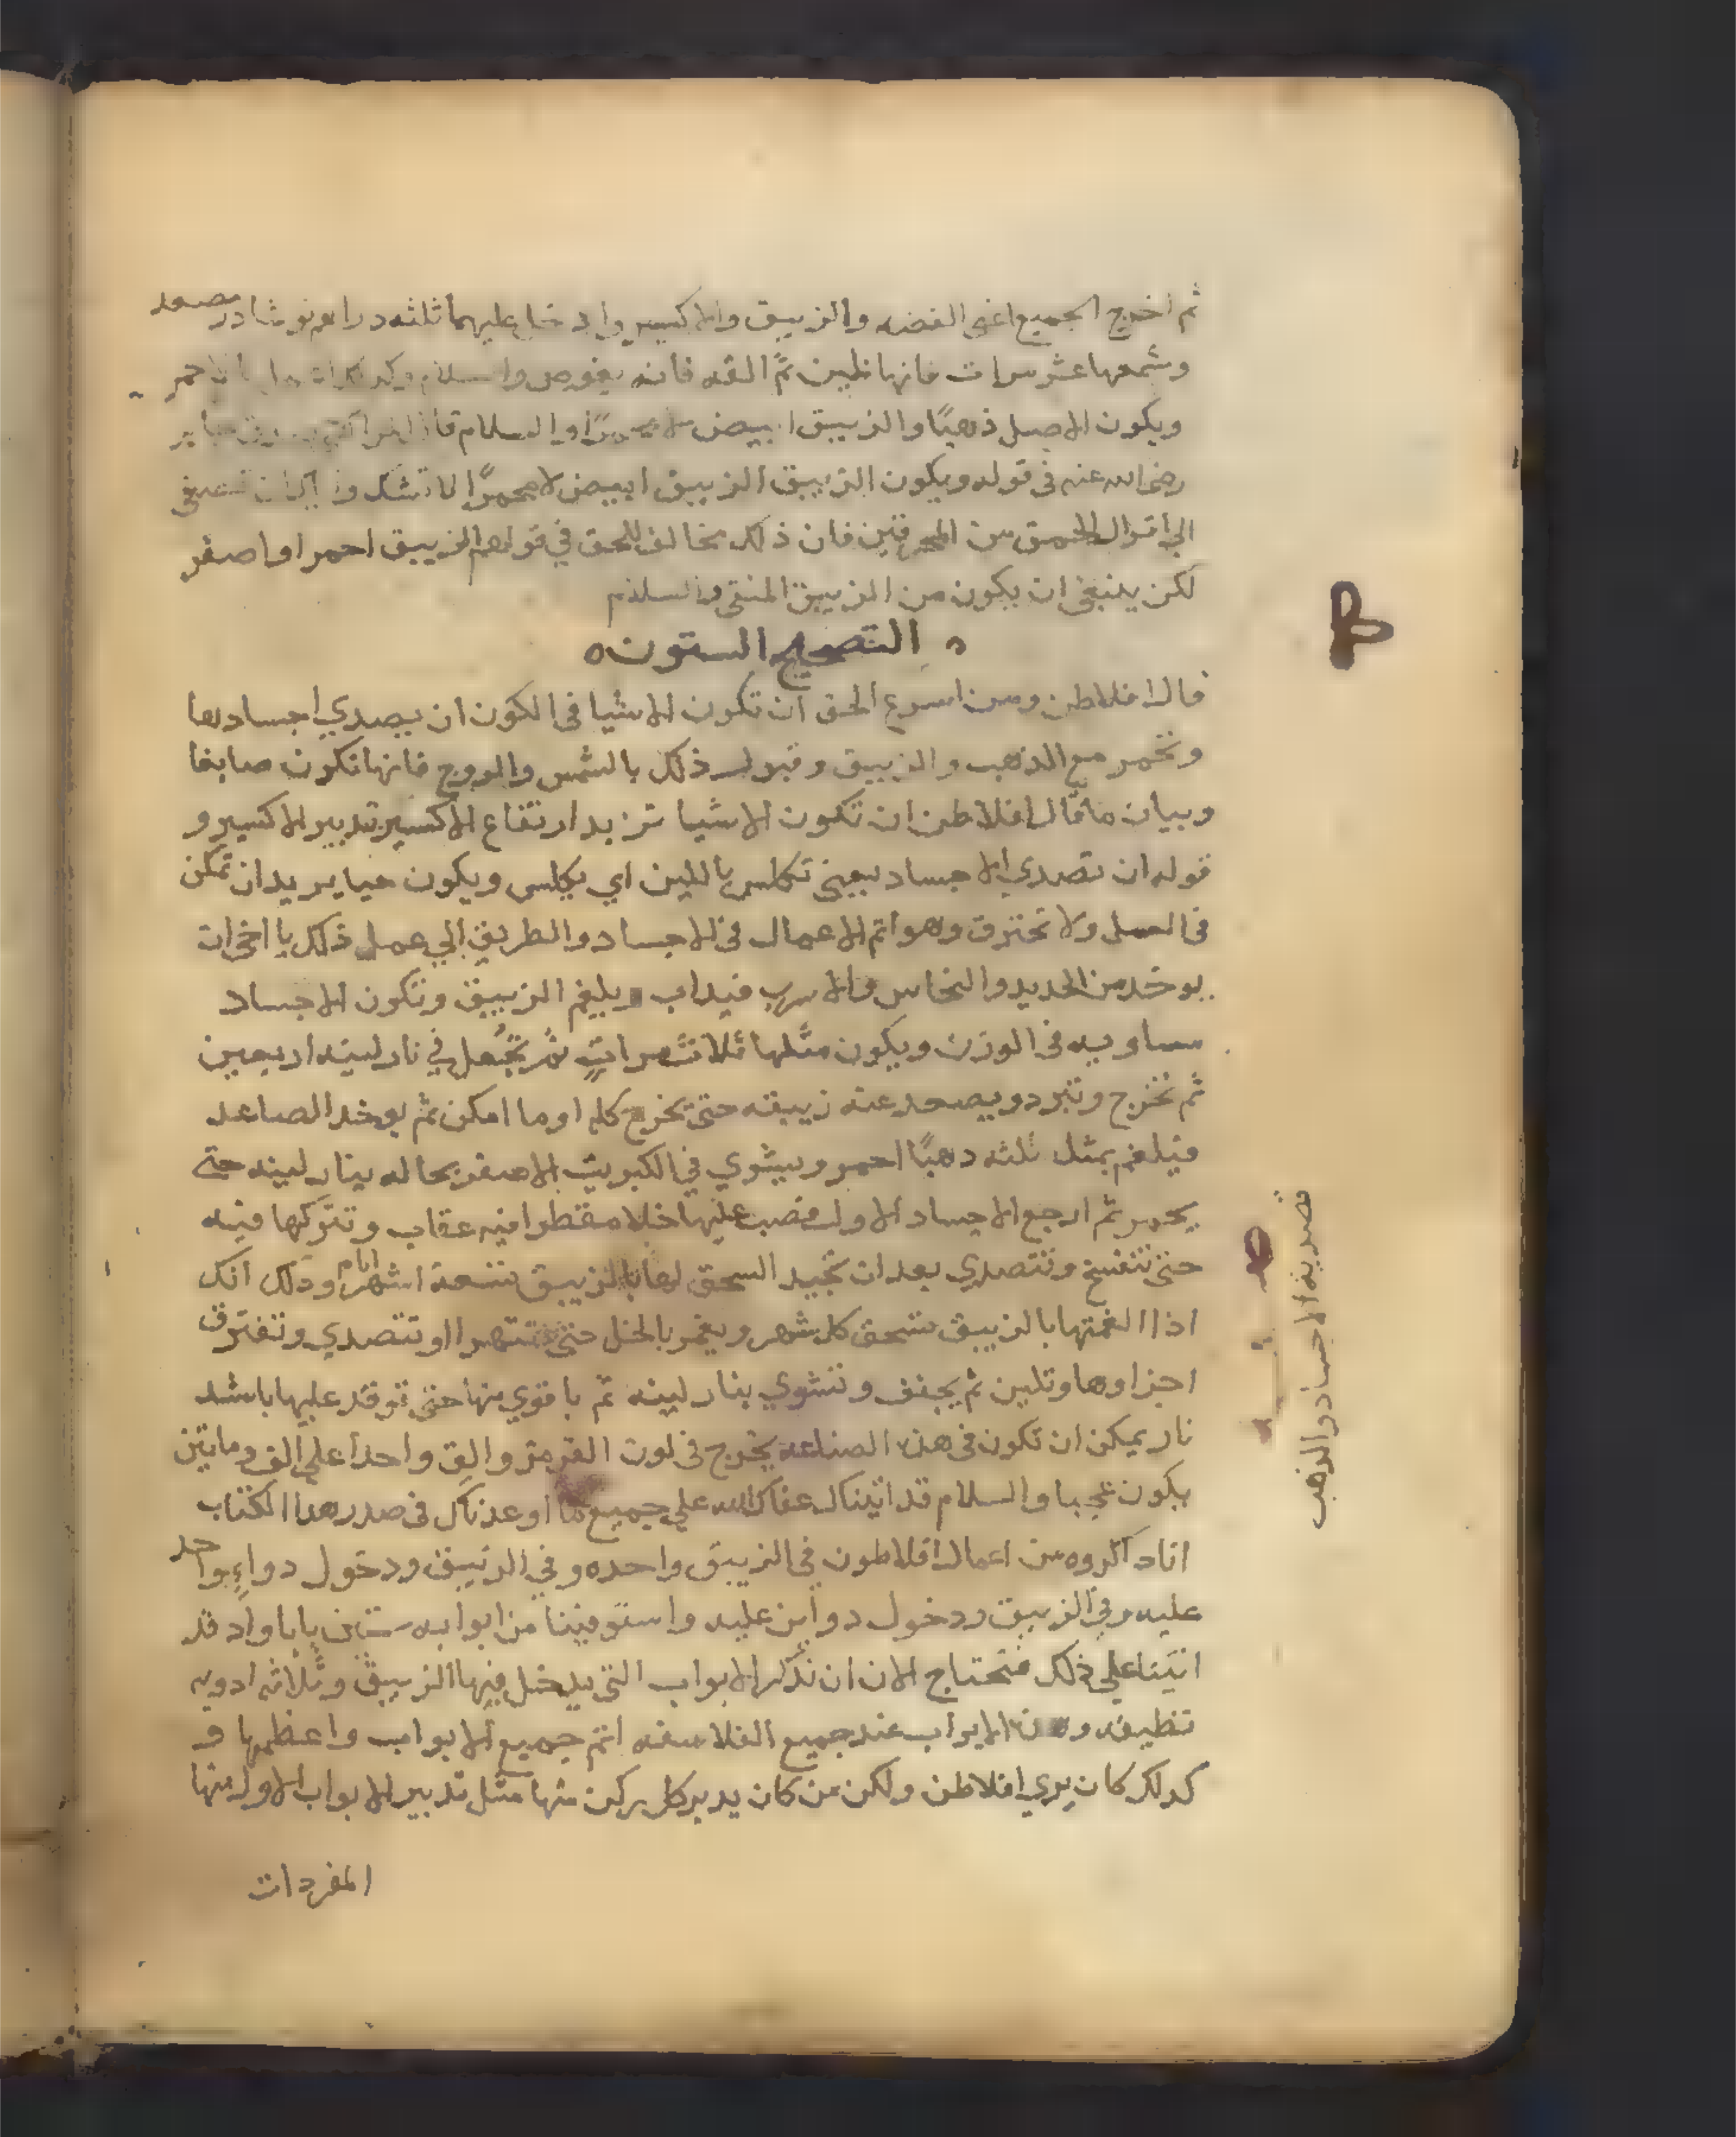 ثم اخرج الجميع اعنى الفضه والزيبق والاكسير وادخل عليهما ثلثه دراهم نوشادر مصعد
وشمعها عشر مرات فانها تلين ثم القه فانه يغوص والسلام
ويكون الاصل ذهبًا والزيبق ابيض لا محمرًا والسلام
رضى الله عنه فى قوله ويكون الزيبق الزيبق ابيض لا محمرًا لا تشك واياك ان تصغى
الي اقوال الحمق من المحرقين فان ذلك مخالف للحق في قولهم الزيبق احمر او اصفر
لكن ينبغى ان يكون من الزيبق المنقى والسلام
التصحيح الستون
قال افلاطن ومن اسرع الحق ان تكون الاشيا فى الكون ان يصدي اجسادها
وتخمر مع الذهب والزيبق وقبول ذلك بالشمس والروح فانها تكون صابغا
وبيان ما قال افلاطن ان تكون الاشيا تزيد ارتفاع الاكسير تدبير الاكسير و
قوله ان تصدي الاجساد يعنى تكلس باللين اي يكلس ويكون حيا يريد ان تمكن
فى العمل ولا تحترق وهو اتم الاعمال فى الاجساد والطريق الي عمل ذلك يا اخى ان
يوخذ من الحديد والنحاس والاسرب فيداب ويلغم الزيبق وتكون الاجساد
مساويه فى الوزن ويكون مثلها ثلاث مرات ثم تجعل في نار لينه اربعين
ثم تخرج وتبرد ويصعد عنه زيبقه حتى يخرج كله او ما امكن ثم يوخذ الصاعد
فيلغم بمثل ثلثه دهبًا احمر ويشوي في الكبريت الاصفر بحاله بنار لينه حتى
يحمر ثم ارجع الاجساد الاول فصب عليها خلا مقطرا فيه عقاب وتتركها فيه
حتى تتفسخ وتتصدي بعد ان تجيد السحق لها بالزيبق تسعة اشهر ايام وذلك انك
اذا الغمتها بالزيبق تسحق كل شهر ويغمر بالخل حتى تتهرا او تتصدي وتفترق
اجزاوها وتلين ثم يجفف وتشوي بنار لينه ثم باقوي منها حتى توقد عليها باشد
نار يمكن ان تكون فى هذه الصناعه يخرج فى لون القرمز والق واحدا علي الف ومايتين
يكون عجيبا والسلام قد اتيناك عفاك الله علي جميع ما اوعدناك فى صدر هدا الكتاب
انا داكروه من اعمال افلاطون في الزيبق واحده وفي الزيبق ودخول دواءٍ واحد
عليه وفى الزيبق ودخول دوأين عليه واستوفينا من ابوابه ستين بابا واد قد
اتينا علي ذلك فنحتاج الان ان نذكر الابواب التى يدخل فيها الزيبق وثلاثه ادويه
نظيفه وهذه الابواب عند جميع الفلاسفه اتم جميع الابواب واعظمها و
كدلك كان يري افلاطن ولكن من كان يدبر كل ركن منها مثل تدبير الابواب الاول منها
المفردات
تصديه الاجساد والذهب